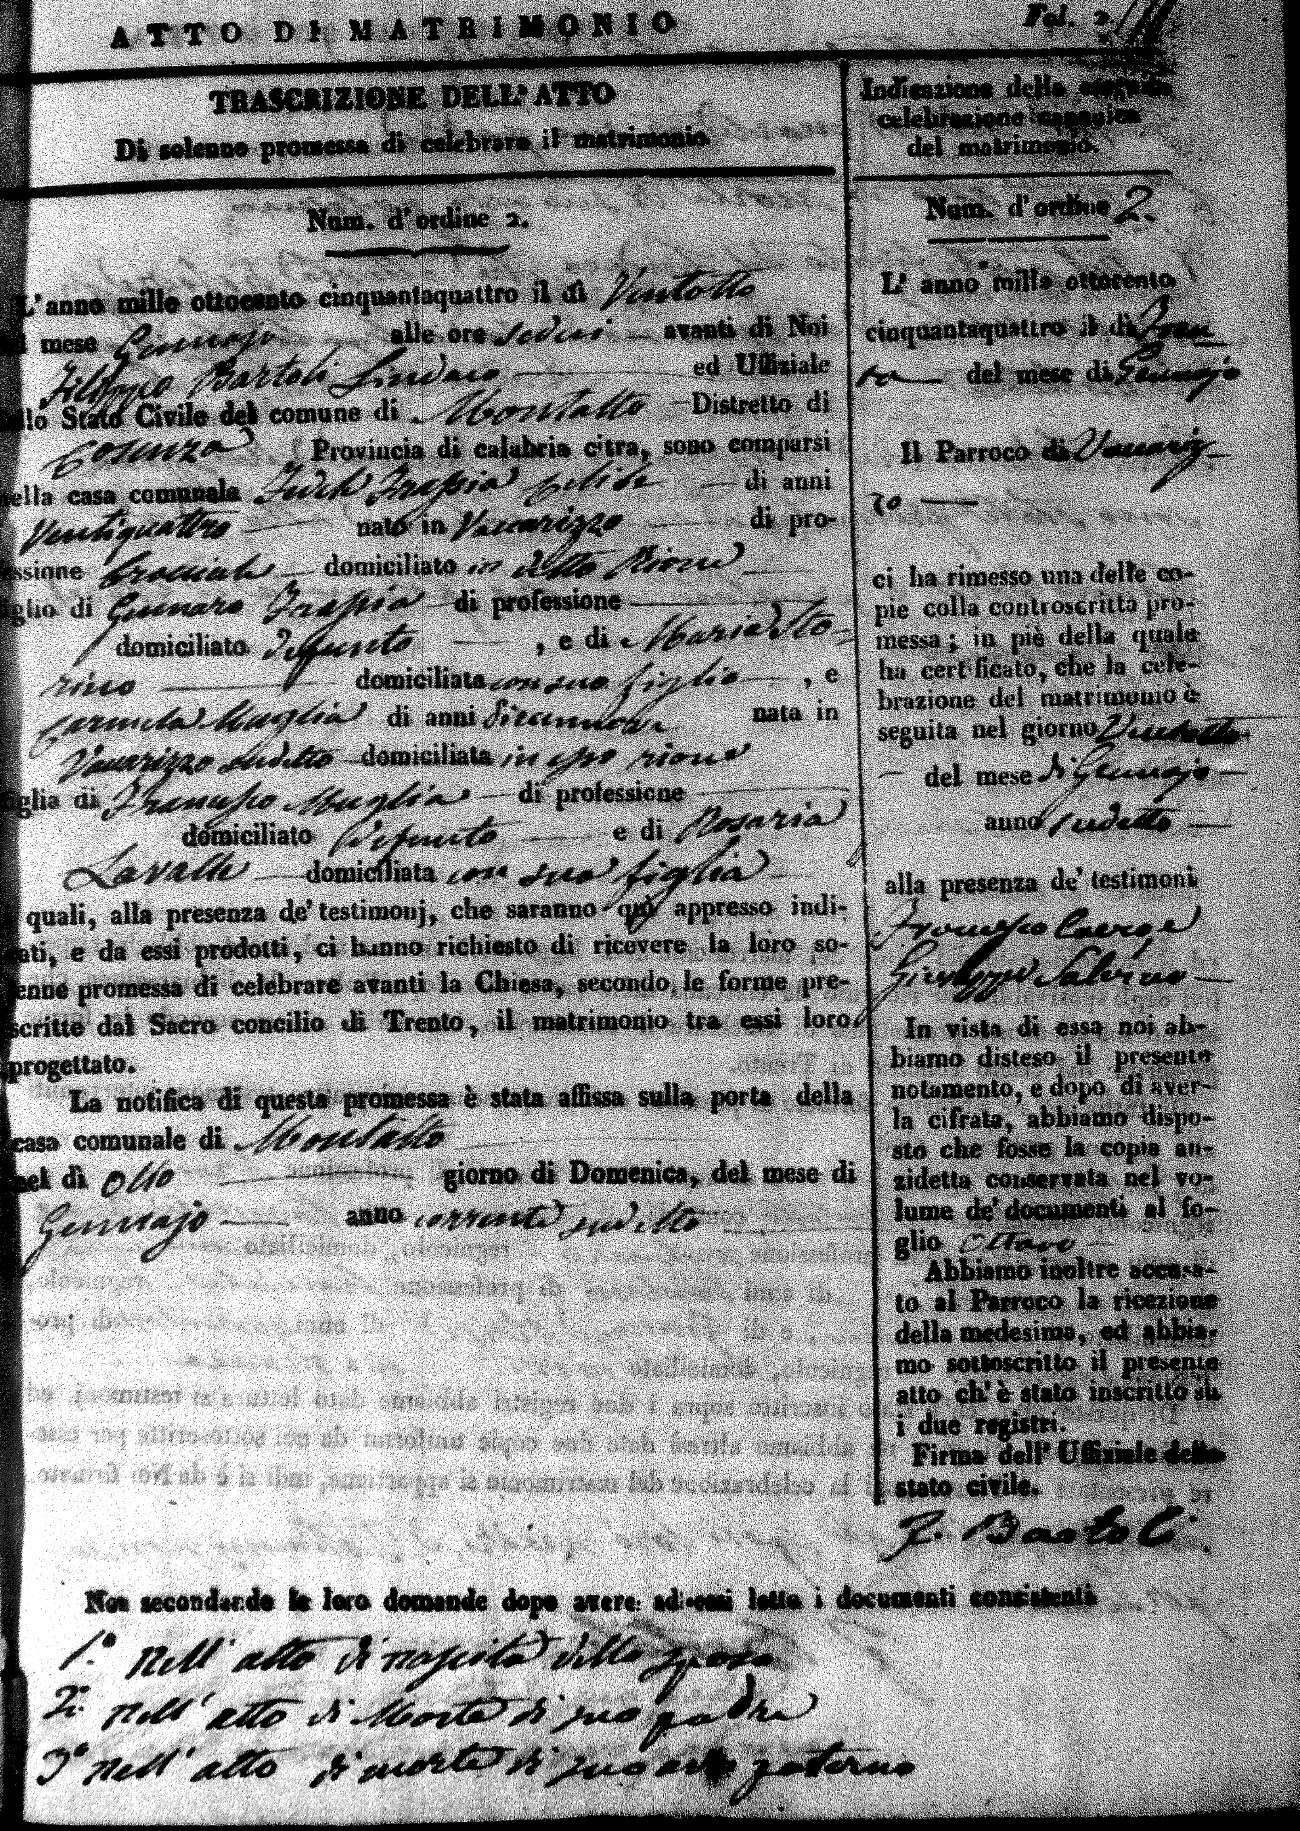 ATTO DI MATRIMONIO
Fol. 2
TRASCRIZIONE DELL' ATTO
Di solenne promessa di celebrare il matrimonio
Num. d'ordine 2.
L'anno mille ottocento cinquantaquattro il dì Ventotto
mese Gennajo alle ore sedici avanti di Noi
Filippo Bartoli Sindaco ed Uffiziale
dello Stato Civile del comune di Montalto Distretto di
Cosenza Provincia di calabria citra, sono comparsi
nella casa comunale Frassia di anni
Ventiquattro nato in Vaccarizzo di pro-
fessione bracciale domiciliato in detto Rione
figlio di Gennaro Frassia di professione
domiciliato Defunto , e di Maria Sto-
rino domiciliata con suo figlio , e
Carmela Muglia di anni Diecinnove nata in
Vaccarizzo sudetto domiciliata in esso rione
figlia di Francesco Muglia di professione
domiciliato Defunto e di Rosaria
Lavalle domiciliata con sua figlia
quali, alla presenza de' testimonj, che saranno quì appresso indi-
cati, e da essi prodotti, ci hanno richiesto di ricevere la loro so-
lenne promessa di celebrare avanti la Chiesa, secondo le forme pre-
scritte dal Sacro concilio di Trento, il matrimonio tra essi loro
progettato.
La notifica di questa promessa è stata affissa sulla porta della
casa comunale di Montalto
nel dì otto giorno di Domenica, del mese di
Gennajo anno corrente sudetto
Indicazione della
celebrazione canonica
del matrimonio.
Num. d'ordine 2.
L' anno mille ottocento
cinquantaquattro il dì Tren
ta del mese di Gennajo
Il Parroco di Vaccariz
zo
ci ha rimesso una delle co-
pie colla controscritta pro-
messa; in piè della quale
ha certificato, che la cele-
brazione del matrimonio è
seguita nel giorno Ventotto
del mese di Gennajo
anno sudetto
alla presenza de' testimoni
Francesco
Giuseppe Salerno
In vista di essa noi ab-
biamo disteso il presente
notamento, e dopo di aver-
la cifrata, abbiamo dispo-
sto che fosse la copia an-
zidetta conservata nel vo-
lume de' documenti al fo-
glio ottavo
Abbiamo inoltre accusa-
to al Parroco la ricezione
della medesima, ed abbia-
mo sottoscritto il presente
atto ch' è stato inscritto su
i due registri.
Firma dell' Uffiziale dello
stato civile.
F. Bartoli
Noi secondando le loro domande dopo avere ad essi letto i documenti consistenti
1.° Nell' atto di nascita dello sposo
2.° Nell' atto di Morte di suo padre
3.° Nell' atto di morte di suo avo paterno